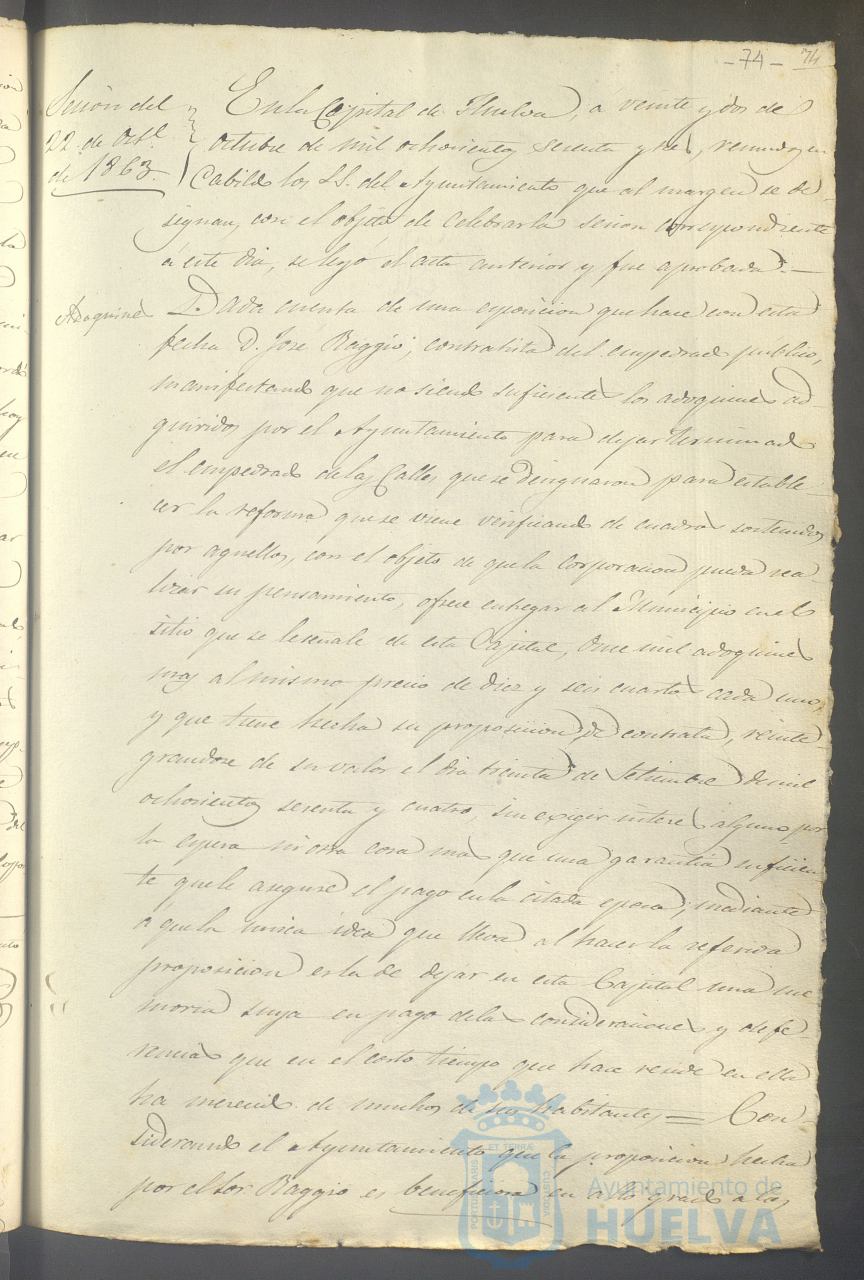 -74- 74
Sesion del
22 de Oct.e
de 1863.
En la Capital de Huelva, a veinte y dos de
octubre de mil ochocientos sesenta y tres, reunidos en
Cabildo los SS. del Ayuntamiento que al margen se de-
signan, con el objeto de celebrar la sesion correspondiente
á este dia, se leyó el acta anterior y fue aprobada.—
Adoquines
Dada cuenta de una esposicion que hace con esta
fecha D. Jose Baggio, contratista del empedrado publico,
manifestando que no siendo suficientes los adoquines ad-
quiridos por el Ayuntamiento para dejar terminado
el empedrado de las Calles que se designaron para estable-
cer la reforma que se viene verificando de cuadros sostenidos
por aquellos, con el objeto de que la Corporacion pueda rea-
lizar su pensamiento, ofrece entregar al Municipio en el
sitio que se le señale de esta Capital, Once mil adoquines
mas al mismo precio de diez y seis cuartos cada uno,
y que tiene hecha su proposicion de contrata, reinte-
grandose de su valor el dia treinta de Setiembre de mil
ochocientos sesenta y cuatro, sin exigir interes alguno por
la espera ni otra cosa mas que una garantia suficien-
te que le asegure el pago en la citada epoca; mediante
á que la unica idea que lleva al hacer la referida
proposicion es la de dejar en esta Capital una me-
moria suya en pago de las consideraciones y defe-
rencias que en el corto tiempo que hace reside en ella
ha merecido de muchos de sus habitantes = Con
siderando el Ayuntamiento que la proposicion hecha
por el Sor. Baggio es beneficiosa en alto grado a los
PORTUS MARIS
ET TERRÆ
CUSTODIA
Ayuntamiento de
HUELVA